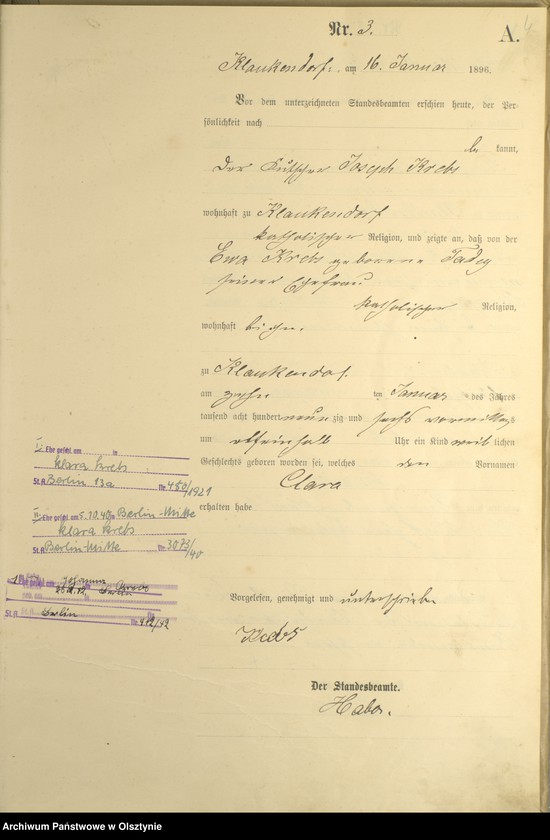 Nr. 3.
A.
4
Klaukendorf, am 16. Januar 1896.
Vor dem unterzeichneten Standesbeamten erschien heute, der Per-
sönlichkeit nach
be kannt,
der Kutscher Joseph Krebs
wohnhaft zu Klaukendorf
katholischer Religion, und zeigte an, daß von der
Ewa Krebs geborene
seiner Ehefrau
katholischer Religion,
wohnhaft bei ihm,
zu Klaukendorf
am zehn ten Januar des Jahres
tausend acht hundert neun zig und sechs vormittags
um Uhr ein Kind weib lichen
Geschlechts geboren worden sei, welches den Vornamen
Clara
erhalten habe
Vorgelesen, genehmigt und unterschrieben
Krebs
Der Standesbeamte.
I. Ehe geschl. am in
Klara Krebs
St. A. Berlin 13a Nr. 450/1921
II. Ehe geschl. am 5.10.40 in Berlin-Mitte
Klara Krebs
St. A. Berlin-Mitte Nr. 3073/40
Johanna Krebs
Berlin
St. A. Berlin Nr.
Archiwum Państwowe w Olsztynie